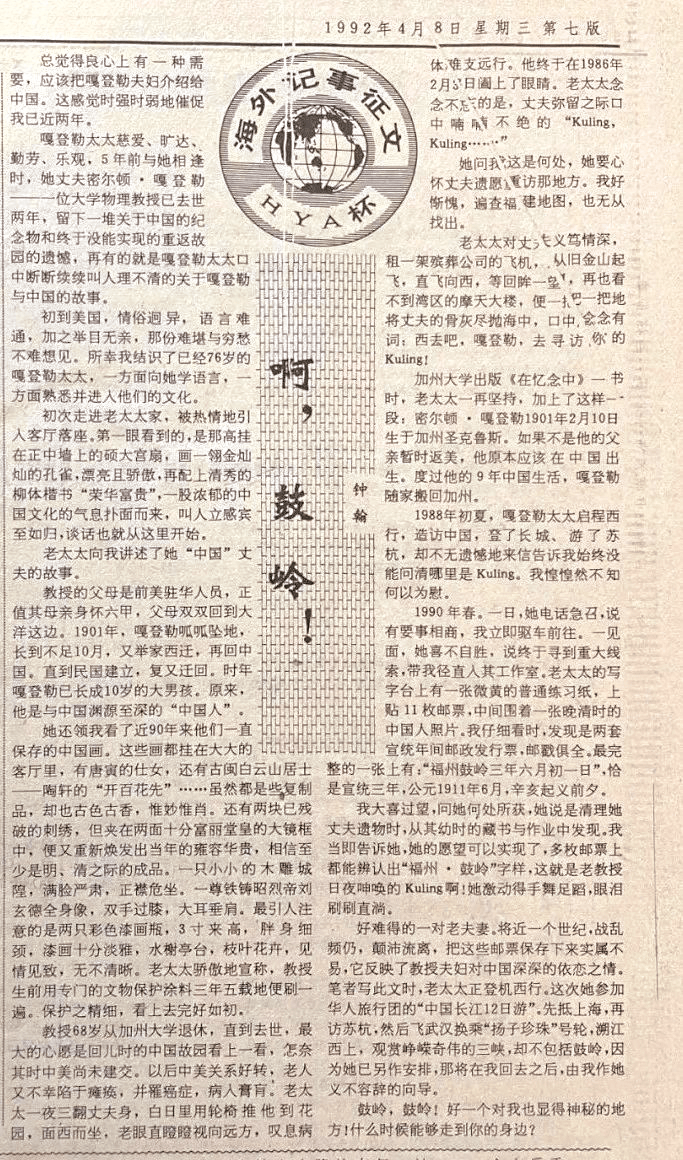 1992年4月8日 星期三 第七版
海外记事征文
HYA杯
啊，鼓岭！
钟翰
总觉得良心上有一种需
要，应该把嘎登勒夫妇介绍给
中国。这感觉时强时弱地催促
我已近两年。
嘎登勒太太慈爱、旷达、
勤劳、乐观，5年前与她相逢
时，她丈夫密尔顿·嘎登勒
——一位大学物理教授已去世
两年，留下一堆关于中国的纪
念物和终于没能实现的重返故
园的遗憾，再有的就是嘎登勒太太口
中断断续续叫人理不清的关于嘎登勒
与中国的故事。
初到美国，情俗迥异，语言难
通，加之举目无亲，那份难堪与穷愁
不难想见。所幸我结识了已经76岁的
嘎登勒太太，一方面向她学语言，一
方面熟悉并进入他们的文化。
初次走进老太太家，被热情地引
入客厅落座。第一眼看到的，是那高挂
在正中墙上的硕大宫扇，画一翎金灿
灿的孔雀，漂亮且骄傲，再配上清秀的
柳体楷书“荣华富贵”，一股浓郁的中
国文化的气息扑面而来，叫人立感宾
至如归，谈话也就从这里开始。
老太太向我讲述了她“中国”丈
夫的故事。
教授的父母是前美驻华人员，正
值其母亲身怀六甲，父母双双回到大
洋这边。1901年，嘎登勒呱呱坠地，
长到不足10月，又举家西迁，再回中
国。直到民国建立，复又迁回。时年
嘎登勒已长成10岁的大男孩。原来，
他是与中国渊源至深的“中国人”。
她还领我看了近90年来他们一直
保存的中国画。这些画都挂在大大的
客厅里，有唐寅的仕女，还有古闽白云山居士
——陶轩的“开百花先”……虽然都是些复制
品，却也古色古香，惟妙惟肖。还有两块已残
破的刺绣，但夹在两面十分富丽堂皇的大镜框
中，便又重新焕发出当年的雍容华贵，相信至
少是明、清之际的成品。一只小小的木雕城
隍，满脸严肃，正襟危坐。一尊铁铸昭烈帝刘
玄德全身像，双手过膝，大耳垂肩。最引人注
意的是两只彩色漆画瓶，3寸来高，胖身细
颈，漆画十分淡雅，水榭亭台，枝叶花卉，见
情见致，无不清晰。老太太骄傲地宣称，教授
生前用专门的文物保护涂料三年五载地便刷一
遍。保护之精细，看上去完好如初。
教授68岁从加州大学退休，直到去世，最
大的心愿是回儿时的中国故园看上一看，怎奈
其时中美尚未建交。以后中美关系好转，老人
又不幸陷于瘫痪，并罹癌症，病入膏肓。老太
太一夜三翻丈夫身，白日里用轮椅推他到花
园，面西而坐，老眼直瞪瞪视向远方，叹息病
体难支远行。他终于在1986年
2月 日阖上了眼睛。老太太念
念不忘的是，丈夫弥留之际口
中喃喃不绝的“Kuling,
Kuling……”
她问我这是何处，她要心
怀丈夫遗愿重访那地方。我好
惭愧，遍查福建地图，也无从
找出。
老太太对丈夫义笃情深，
租一架殡葬公司的飞机，从旧金山起
飞，直飞向西，等回眸一望，再也看
不到湾区的摩天大楼，便一把一把地
将丈夫的骨灰尽抛海中，口中念念有
词：西去吧，嘎登勒，去寻访你的
Kuling!
加州大学出版《在忆念中》一书
时，老太太一再坚持，加上了这样一
段：密尔顿·嘎登勒1901年2月10日
生于加州圣克鲁斯。如果不是他的父
亲暂时返美，他原本应该在中国出
生。度过他的9年中国生活，嘎登勒
随家搬回加州。
1988年初夏，嘎登勒太太启程西
行，造访中国，登了长城、游了苏
杭，却不无遗憾地来信告诉我始终没
能问清哪里是Kuling。我惶惶然不知
何以为慰。
1990年春。一日，她电话急召，说
有要事相商，我立即驱车前往。一见
面，她喜不自胜，说终于寻到重大线
索，带我径直入其工作室。老太太的写
字台上有一张微黄的普通练习纸，上
贴11枚邮票，中间围着一张晚清时的
中国人照片。我仔细看时，发现是两套
宣统年间邮政发行票，邮戳俱全。最完
整的一张上有：“福州鼓岭三年六月初一日”，恰
是宣统三年，公元1911年6月，辛亥起义前夕。
我大喜过望，问她何处所获，她说是清理她
丈夫遗物时，从其幼时的藏书与作业中发现。我
当即告诉她，她的愿望可以实现了，多枚邮票上
都能辨认出“福州·鼓岭”字样，这就是老教授
日夜呻唤的Kuling啊！她激动得手舞足蹈，眼泪
刷刷直淌。
好难得的一对老夫妻。将近一个世纪，战乱
频仍，颠沛流离，把这些邮票保存下来实属不
易，它反映了教授夫妇对中国深深的依恋之情。
笔者写此文时，老太太正登机西行。这次她参加
华人旅行团的“中国长江12日游”。先抵上海，再
访苏杭，然后飞武汉换乘“扬子珍珠”号轮，溯江
西上，观赏峥嵘奇伟的三峡，却不包括鼓岭，因
为她已另作安排，那将在我回去之后，由我作她
义不容辞的向导。
鼓岭，鼓岭！好一个对我也显得神秘的地
方！什么时候能够走到你的身边？